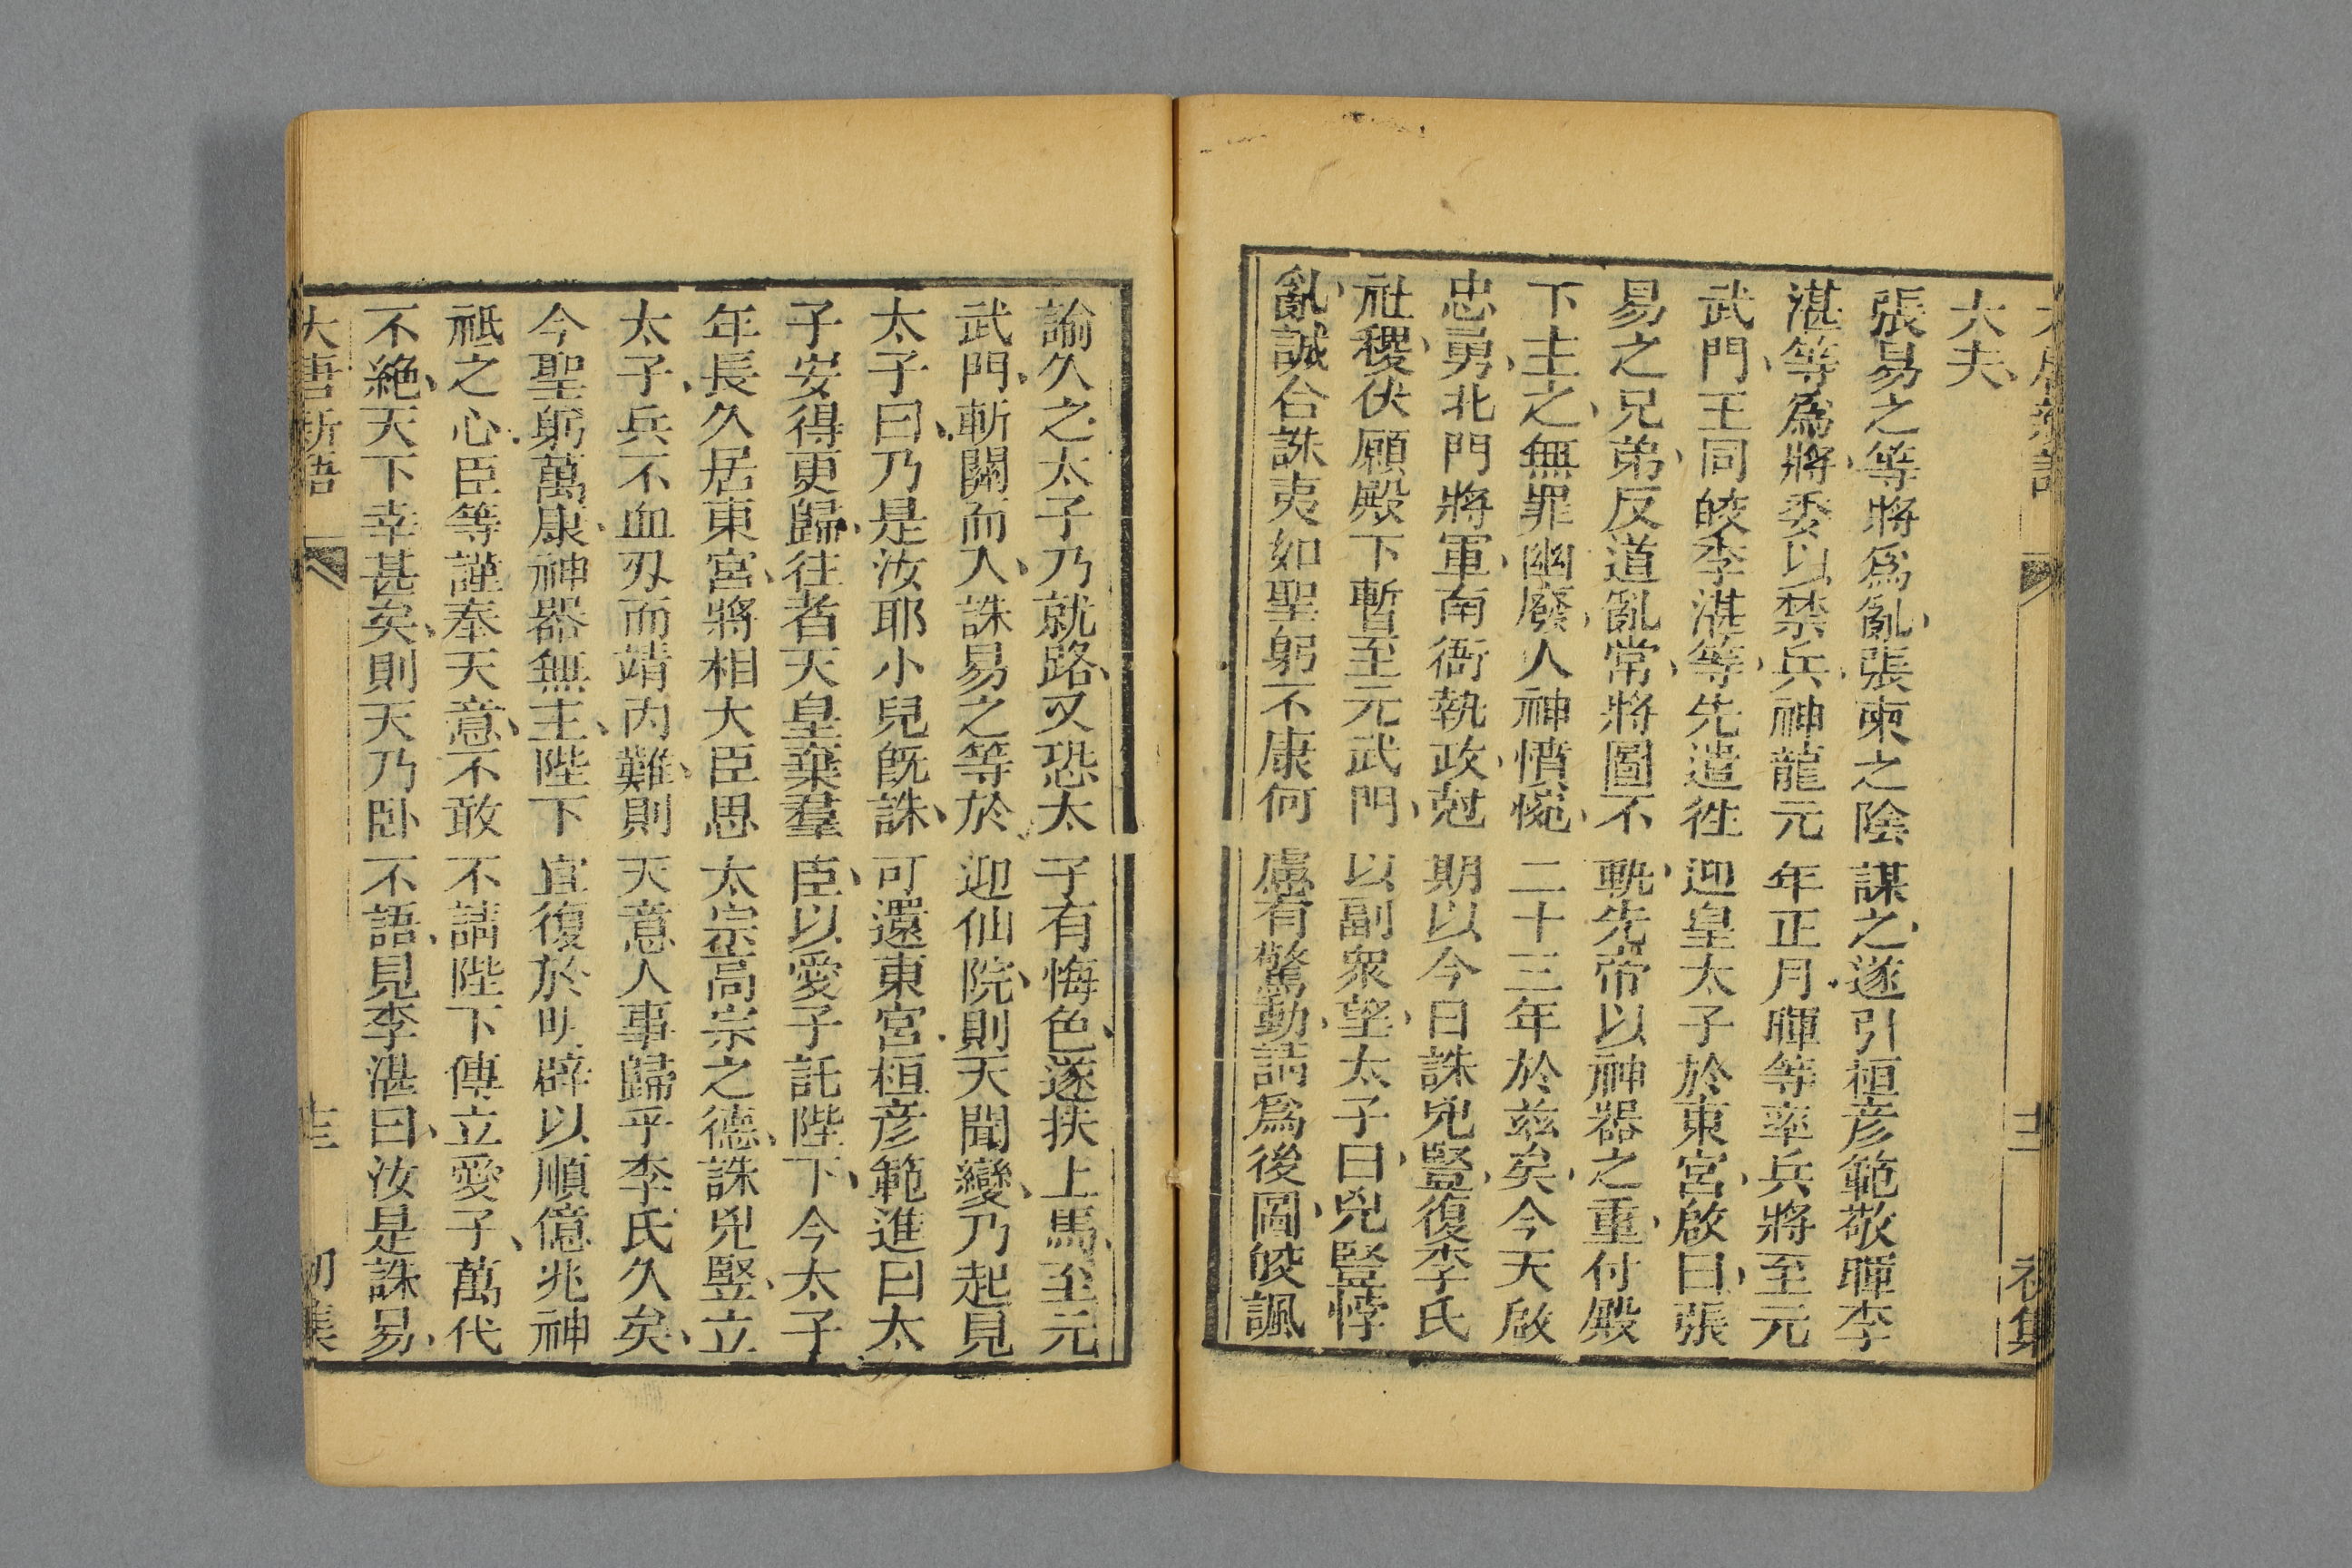 大夫
張易之等將爲亂張柬之陰謀之遂引桓彦範敬暉李
湛等爲將委以禁兵神龍元年正月暉等率兵將至元
武門王同皎李湛等先遣往迎皇太子於東宮啟曰張
易之兄弟反道亂常將圖不軌先帝以神器之重付殿
下主之無罪幽廢人神憤惋二十三年於兹矣今天啟
忠勇北門將軍南衙執政尅期以今日誅兇豎復李氏
社稷伏願殿下暫至元武門以副衆望太子曰兇豎悖
亂誠合誅夷如聖躬不康何慮有驚動請爲後圖皎諷
諭久之太子乃就路又恐太子有悔色遂扶上馬至元
武門斬關而入誅易之等於迎仙院則天聞變乃起見
太子曰乃是汝耶小兒既誅可還東宮桓彦範進曰太
子安得更歸往者天皇棄羣臣以愛子託陛下今太子
年長久居東宮將相大臣思太宗高宗之德誅兇豎立
太子兵不血刃而靖内難則天意人事歸乎李氏久矣
今聖躬萬康神器無主陛下宜復於明辟以順億兆神
祗之心臣等謹奉天意不敢不請陛下傳立愛子萬代
不絶天下幸甚矣則天乃卧不語見李湛曰汝是誅易
大唐新語